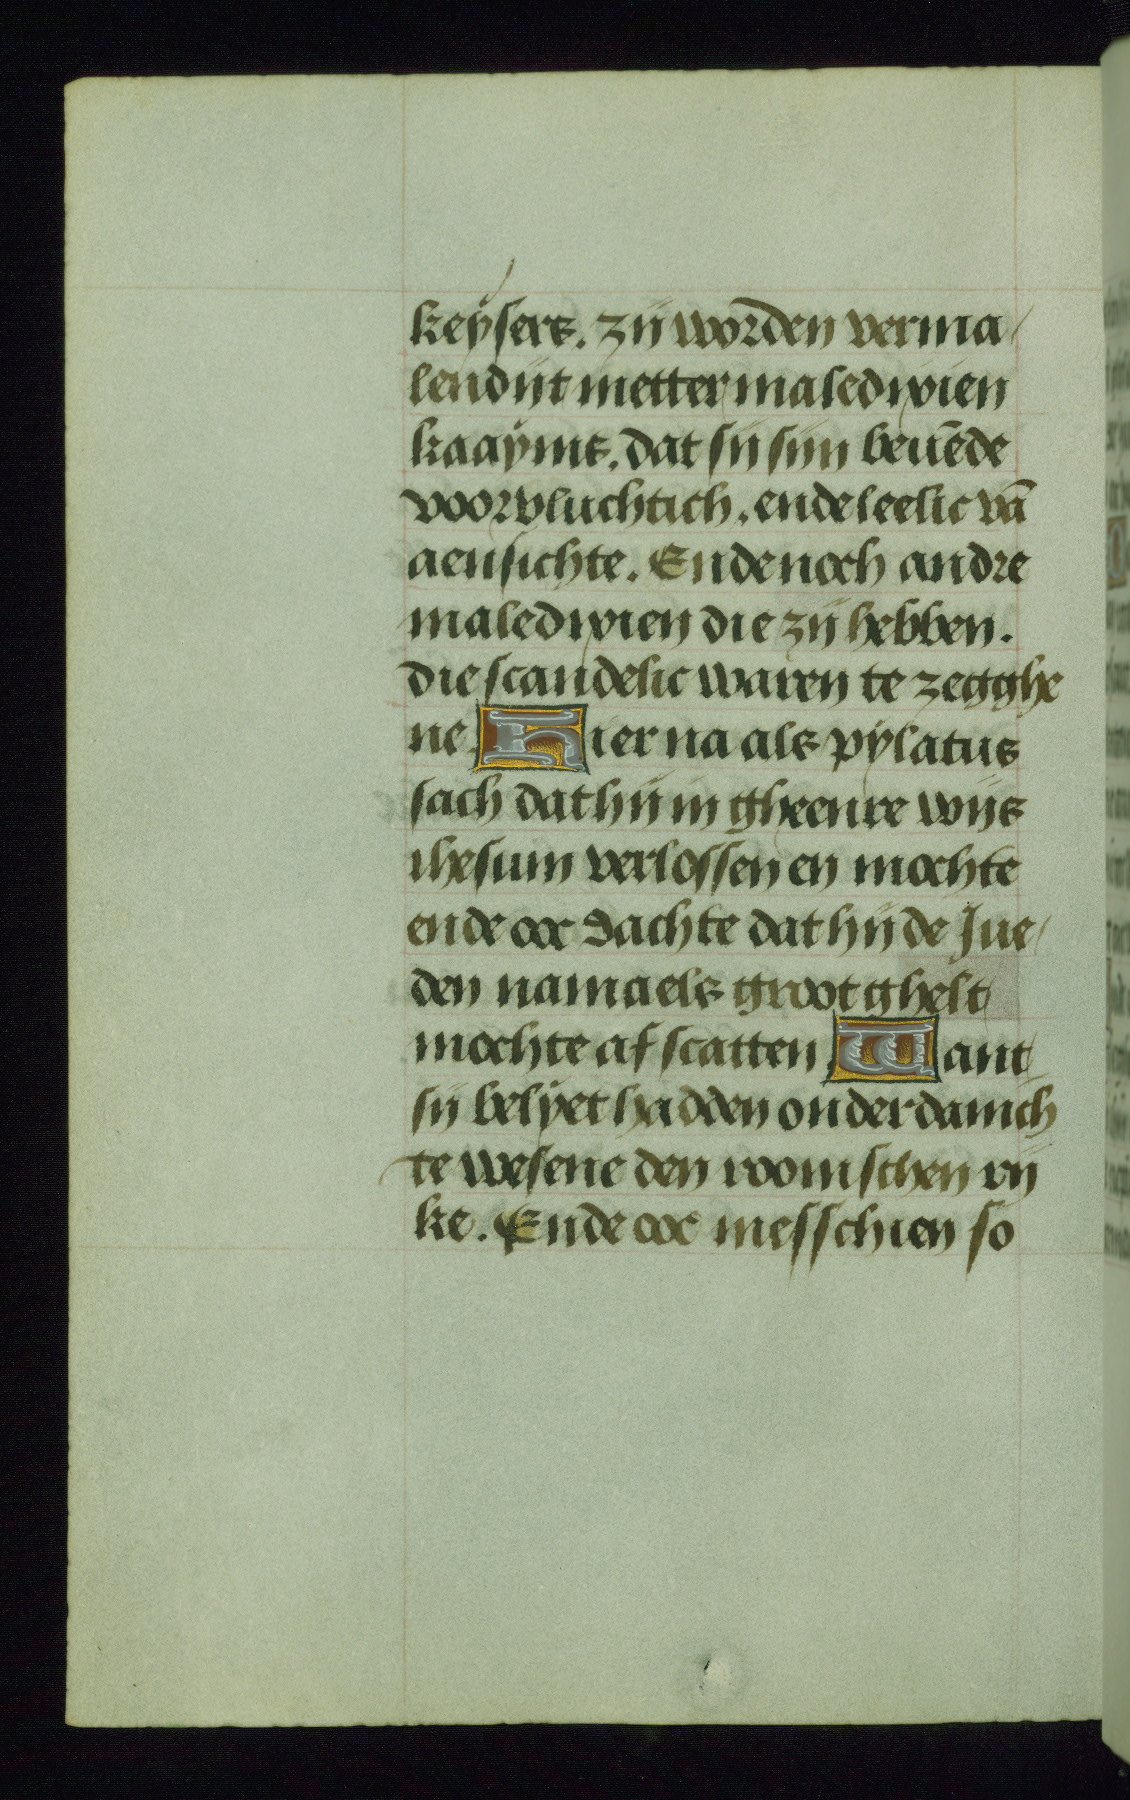 keysers. zij worden verma
lendijt metter maledixien
kaayms. dat sij sijn beuēde
voorvluchtich. ende leelic vā
aensichte. Ende noch andre
maledixien die zij hebben.
die scandelic waren te zegghe
ne. Hier na als pylatus
sach dat hij in gheenre wijs
ihesum verlossen en mochte
ende ooc dachte dat hij de Jue
den namaels groot ghelt
mochte af scatten. Want
sij belyet hadden onderdanich
te wesene den roomschen rij
ke. Ende ooc messchien so